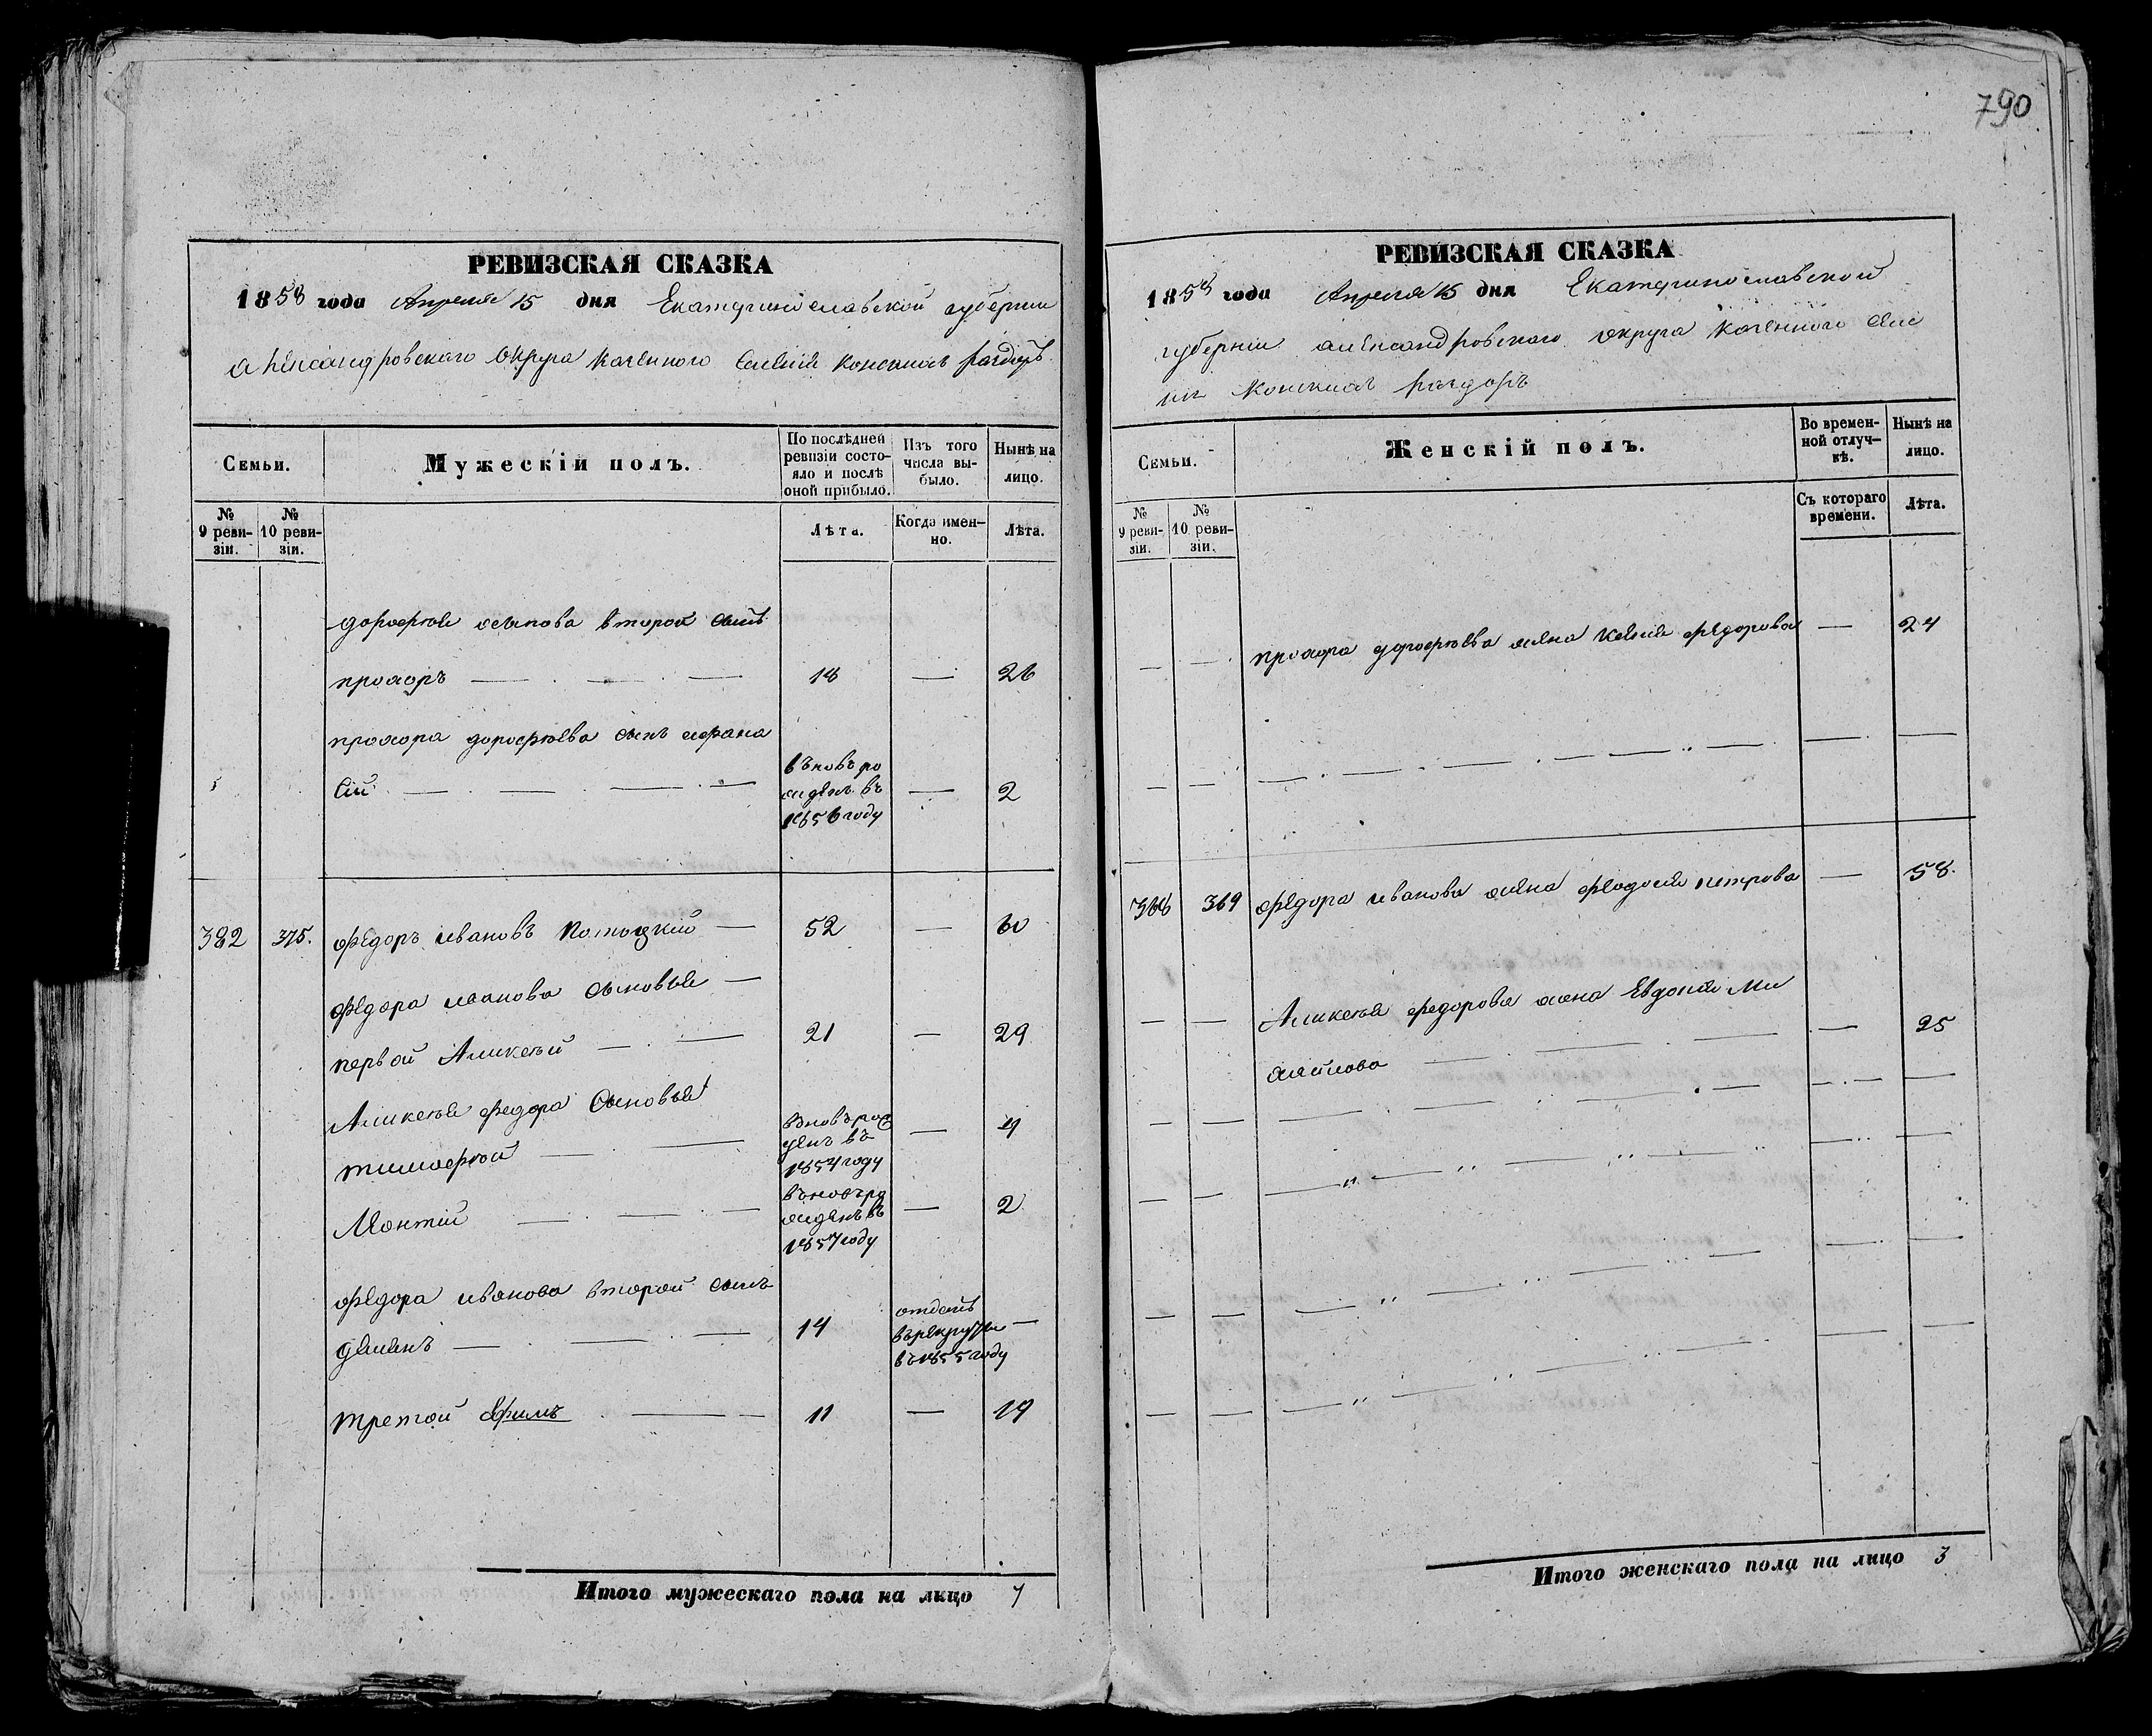 790
РЕВИЗСКАЯ СКАЗКА
1858 года Апреля 15 дня Екатеринославской губернии
Александровского округа казенного селенія конскихъ раздоръ
Семьи.
Мужескій полъ.
По послѣдней ревизіи состояло и послѣ оной прибыло.
Изъ того числа выбыло.
Нынѣ на лицо.
№ 9 ревизіи.
№ 10 ревизіи.
Лѣта.
Когда именно.
Лѣта.
дорофея осипова второй сынъ
прохоръ — 18 — 26
прохора дорофеева сынъ афана
сій — вновь рожденъ въ 1856 году — 2
382 375. федоръ ивановъ Потоцкій — 52 — 60
федора иванова сыновья —
первой Аликсѣй — 21 — 29
Аликсѣя федора Сыновья
тимофѣй — вновь рожденъ въ 1854 году — 4
Леонтій — вновь рожденъ въ 1857 году — 2
федора иванова второй сынъ
демянъ — 14 отданъ въ рекруты въ 1855 году —
третой Ефимъ — 11 — 19
Итого мужескаго пола на лицо 7
РЕВИЗСКАЯ СКАЗКА
1858 года Апреля 15 дня Екатеринославской
губерніи александровского округа казенного селе
нія Конскихъ раздоръ
Семьи.
Женскій полъ.
Во временной отлучкѣ.
Нынѣ на лицо.
№ 9 ревизіи.
№ 10 ревизіи.
Съ котораго времени.
Лѣта.
— — прохора дорофеева жена Ксенія федорова — 24
— — — — —
366 369 федора иванова жена феодосія петрова — 58.
— — Аликсѣя федорова жена Евдокія Ми
хайлова — — 25
— — — — —
— — — — —
— — — — —
— — — — —
Итого женскаго пола на лицо 3